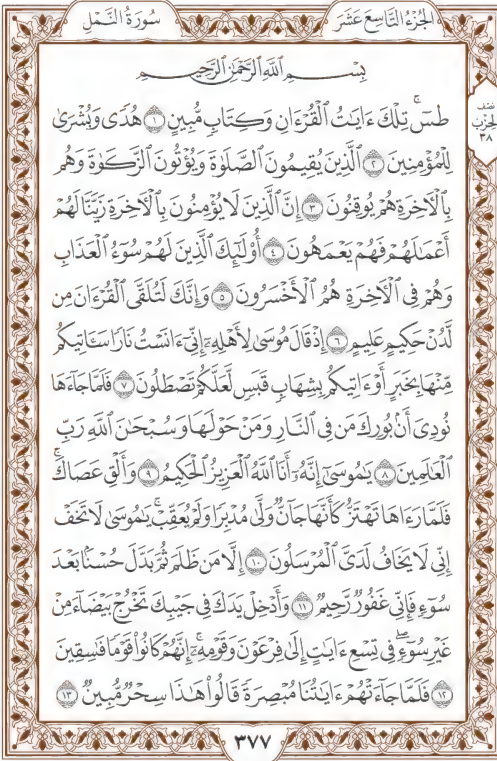 سُورَةُ النَّمْلِ
الجُزْءُ التَّاسِعَ عَشَرَ
بِسْمِ ٱللَّهِ ٱلرَّحْمَٰنِ ٱلرَّحِيمِ
نصف
الحزب
٣٨
طسٓۚ تِلْكَ ءَايَٰتُ ٱلْقُرْءَانِ وَكِتَابٍ مُّبِينٍ ١ هُدًى وَبُشْرَىٰ
لِلْمُؤْمِنِينَ ٢ ٱلَّذِينَ يُقِيمُونَ ٱلصَّلَوٰةَ وَيُؤْتُونَ ٱلزَّكَوٰةَ وَهُم
بِٱلْأَخِرَةِ هُمْ يُوقِنُونَ ٣ إِنَّ ٱلَّذِينَ لَا يُؤْمِنُونَ بِٱلْأَخِرَةِ زَيَّنَّا لَهُمْ
أَعْمَٰلَهُمْ فَهُمْ يَعْمَهُونَ ٤ أُوْلَٰٓئِكَ ٱلَّذِينَ لَهُمْ سُوٓءُ ٱلْعَذَابِ
وَهُمْ فِى ٱلْأَخِرَةِ هُمُ ٱلْأَخْسَرُونَ ٥ وَإِنَّكَ لَتُلَقَّى ٱلْقُرْءَانَ مِن
لَّدُنْ حَكِيمٍ عَلِيمٍ ٦ إِذْ قَالَ مُوسَىٰ لِأَهْلِهِۦٓ إِنِّىٓ ءَانَسْتُ نَارًا سَـَٔاتِيكُم
مِّنْهَا بِخَبَرٍ أَوْ ءَاتِيكُم بِشِهَابٍ قَبَسٍ لَّعَلَّكُمْ تَصْطَلُونَ ٧ فَلَمَّا جَآءَهَا
نُودِىَ أَنۢ بُورِكَ مَن فِى ٱلنَّارِ وَمَنْ حَوْلَهَا وَسُبْحَٰنَ ٱللَّهِ رَبِّ
ٱلْعَٰلَمِينَ ٨ يَٰمُوسَىٰٓ إِنَّهُۥٓ أَنَا ٱللَّهُ ٱلْعَزِيزُ ٱلْحَكِيمُ ٩ وَأَلْقِ عَصَاكَۚ
فَلَمَّا رَءَاهَا تَهْتَزُّ كَأَنَّهَا جَآنٌّ وَلَّىٰ مُدْبِرًا وَلَمْ يُعَقِّبْۚ يَٰمُوسَىٰ لَا تَخَفْ
إِنِّى لَا يَخَافُ لَدَىَّ ٱلْمُرْسَلُونَ ١٠ إِلَّا مَن ظَلَمَ ثُمَّ بَدَّلَ حُسْنًۢا بَعْدَ
سُوٓءٍ فَإِنِّى غَفُورٌ رَّحِيمٌ ١١ وَأَدْخِلْ يَدَكَ فِى جَيْبِكَ تَخْرُجْ بَيْضَآءَ مِنْ
غَيْرِ سُوٓءٍۖ فِى تِسْعِ ءَايَٰتٍ إِلَىٰ فِرْعَوْنَ وَقَوْمِهِۦٓۚ إِنَّهُمْ كَانُواْ قَوْمًا فَٰسِقِينَ
١٢ فَلَمَّا جَآءَتْهُمْ ءَايَٰتُنَا مُبْصِرَةً قَالُواْ هَٰذَا سِحْرٌ مُّبِينٌ ١٣
٣٧٧